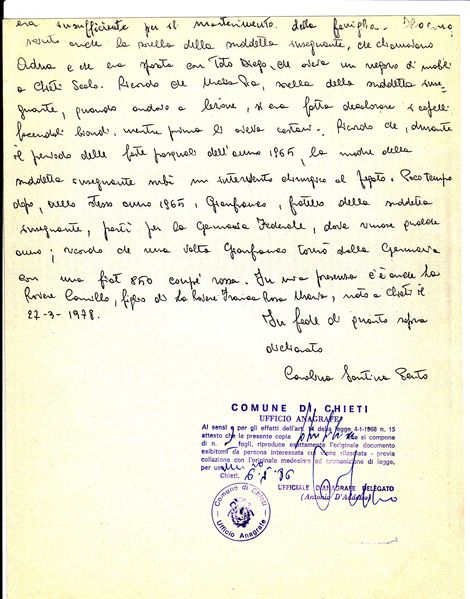 era insufficiente per il mantenimento della famiglia. Ho cono
sciuto anche la sorella della suddetta insegnante, che chiamavano
Adua e che era sposata con Toto Diego, che aveva un negozio di mobili
a Chieti Scalo. Ricordo che Maria Pia, sorella della suddetta inse-
gnante, quando andavo a lezione, si era fatta decolorare i capelli
facendoli biondi, mentre prima li aveva castani. Ricordo che, durante
il periodo delle feste pasquali dell'anno 1965, la madre della
suddetta insegnante subì un intervento chirurgico al fegato. Poco tempo
dopo, nello stesso anno 1965, Gianfranco, fratello della suddetta
insegnante, partì per la Germania Federale, dove rimase qualche
anno; ricordo che una volta Gianfranco tornò dalla Germania
con una fiat 850 coupé rossa. In mia presenza c'è anche La
Rovere Camillo, figlio di La Rovere Franca Rosa Maria, nato a Chieti il
27-3-1978.
In fede di quanto sopra
dichiarato
Santina
COMUNE DI CHIETI
UFFICIO ANAGRAFE
Ai sensi e per gli effetti dell'art. 14 della legge 4-1-1968 n. 15
attesto che la presente copia che si compone
di n. 2 fogli, riproduce esattamente l'originale documento
esibitomi da persona interessata cui viene rilasciata - previa
collazione con l'originale medesimo ed ammonizione di legge,
per uso
Chieti,
UFFICIALE D'ANAGRAFE DELEGATO
(Antonio D'Aldelio)
Comune di Chieti
Ufficio Anagrafe